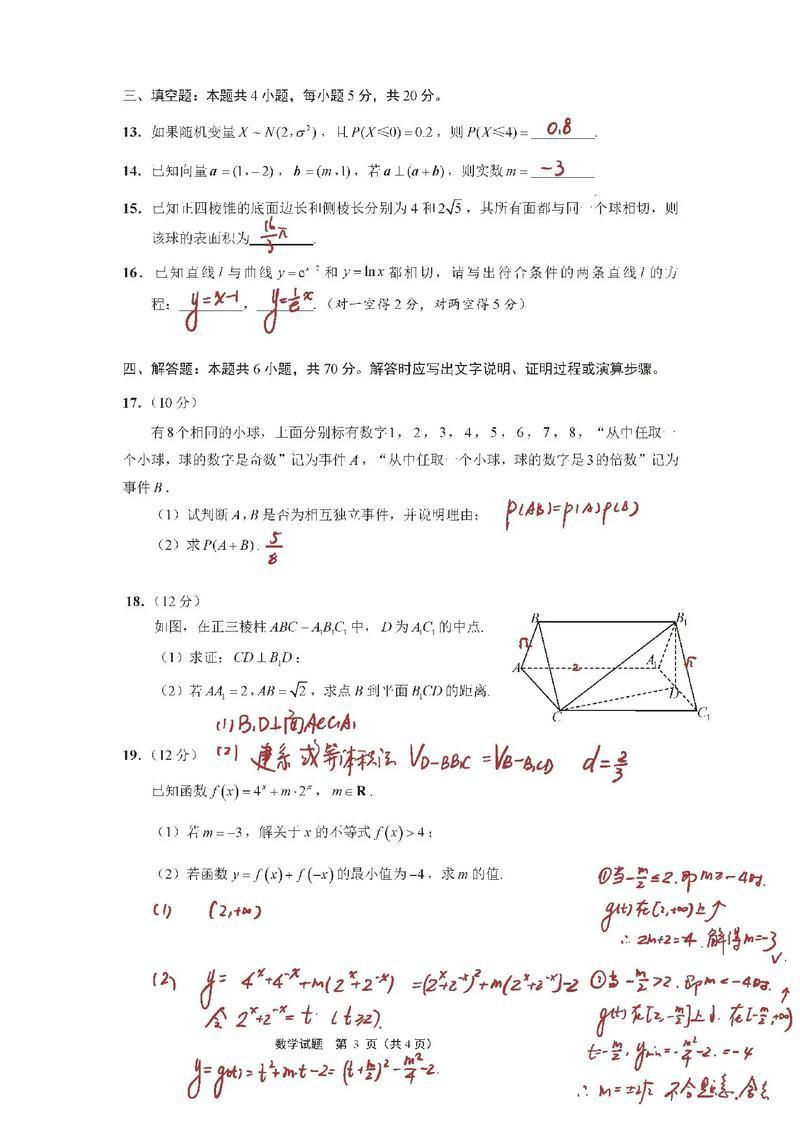 三、填空题：本题共4小题，每小题5分，共20分。
13. 如果随机变量 X ~ N(2, σ²)，且 P(X≤0)=0.2，则 P(X≤4)= 0.8 .
14. 已知向量 a=(1,-2)，b=(m,1)，若 a⊥(a+b)，则实数 m= -3
15. 已知正四棱锥的底面边长和侧棱长分别为 4 和 2√5，其所有面都与同一个球相切，则
该球的表面积为 16/3 π .
16. 已知直线 l 与曲线 y=eˣ⁻² 和 y=lnx 都相切，请写出符合条件的两条直线 l 的方
程：y=x-1，y=1/e x.（对一空得2分，对两空得5分）
四、解答题：本题共6小题，共70分。解答时应写出文字说明、证明过程或演算步骤。
17.（10分）
有8个相同的小球，上面分别标有数字1，2，3，4，5，6，7，8，“从中任取一
个小球，球的数字是奇数”记为事件 A，“从中任取一个小球，球的数字是3的倍数”记为
事件 B.
（1）试判断 A,B 是否为相互独立事件，并说明理由； P(AB)=P(A)P(B)
（2）求 P(A+B). 5/8
18.（12分）
如图，在正三棱柱 ABC-A₁B₁C₁ 中，D 为 A₁C₁ 的中点.
（1）求证：CD⊥B₁D；
（2）若 AA₁=2,AB=√2，求点 B 到平面 B₁CD 的距离.
B B₁
√2
A 2 A₁ √2
D
C C₁
(1) B₁D⊥面ACC₁A₁
19.（12分） (2) 建系 或等体积法 V_D-BB₁C = V_B-B₁CD d=2/3
已知函数 f(x)=4ˣ+m·2ˣ，m∈R.
（1）若 m=-3，解关于 x 的不等式 f(x)>4；
（2）若函数 y=f(x)+f(-x) 的最小值为-4，求 m 的值.
(1) (2,+∞)
(2) y= 4ˣ+4⁻ˣ+m(2ˣ+2⁻ˣ) =(2ˣ+2⁻ˣ)²+m(2ˣ+2⁻ˣ)-2
令 2ˣ+2⁻ˣ=t (t≥2).
y=g(t)=t²+mt-2=(t+m/2)²-m²/4-2.
①当-m/2≤2.即m≥-4时.
g(t)在[2,+∞)上↑
∴ 2m+2=-4 解得m=-3
√.
②当-m/2>2.即m<-4时.
g(t)在[2,-m/2]上↓. 在[-m/2,+∞)↑
t=-m/2, ymin=-m²/4-2.=-4
∴ m=±2√2 不合题意.舍去
数学试题 第 3 页（共4页）